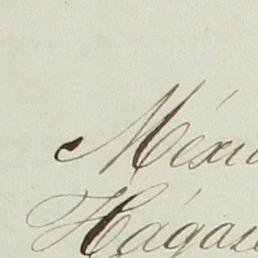 Méxi
Hágas